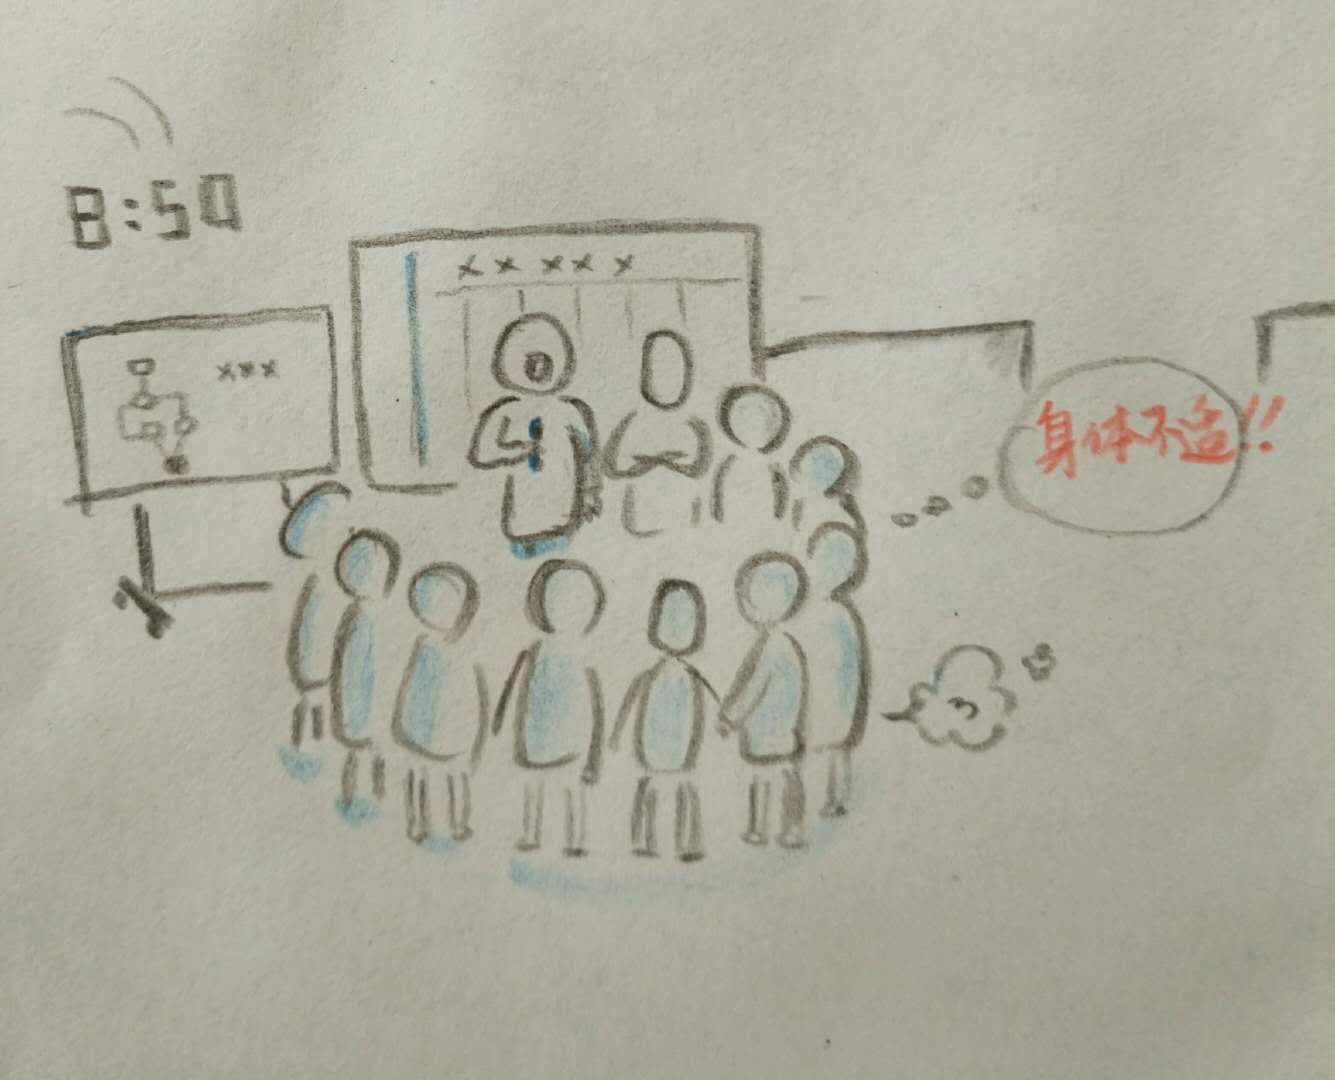 8:50
×× ×× ×
×××
身体不适!!